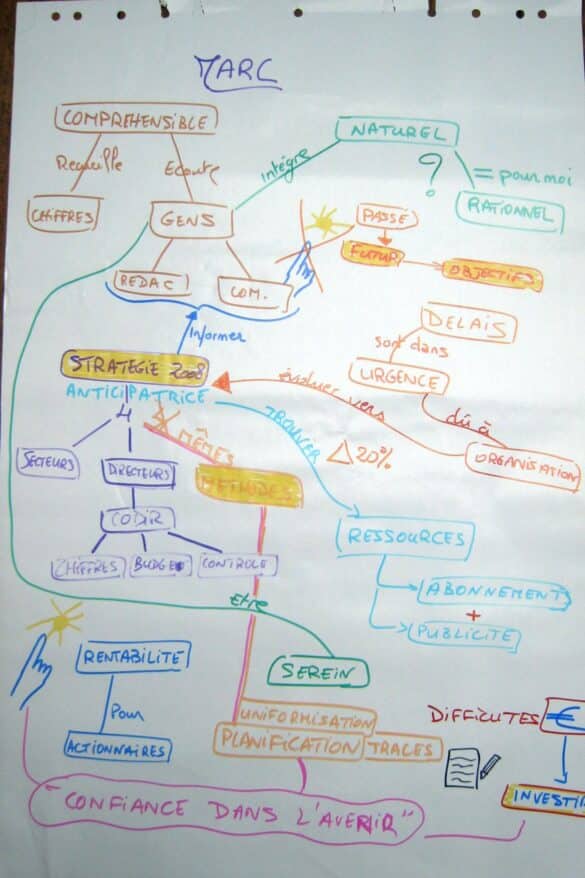 MARC
COMPREHENSIBLE
NATUREL
Recueille
Ecoute
Intègre
?
= pour moi
CHIFFRES
GENS
PASSÉ
RATIONNEL
FUTUR
OBJECTIFS
REDAC
COM.
Informer
DELAIS
sont dans
STRATEGIE 2008
URGENCE
ANTICIPATRICE
évoluer vers
dû à
4
TROUVER
MÊMES
Δ 20%
ORGANISATION
SECTEURS
DIRECTEURS
METHODES
CODIR
RESSOURCES
CHIFFRES
BUDGET
CONTROLE
ABONNEMENT
+
Etre
PUBLICITÉ
RENTABILITÉ
SEREIN
Pour
UNIFORMISATION
DIFFICUTES
€
ACTIONNAIRES
PLANIFICATION
TRACES
INVESTI
"CONFIANCE DANS L'AVENIR"